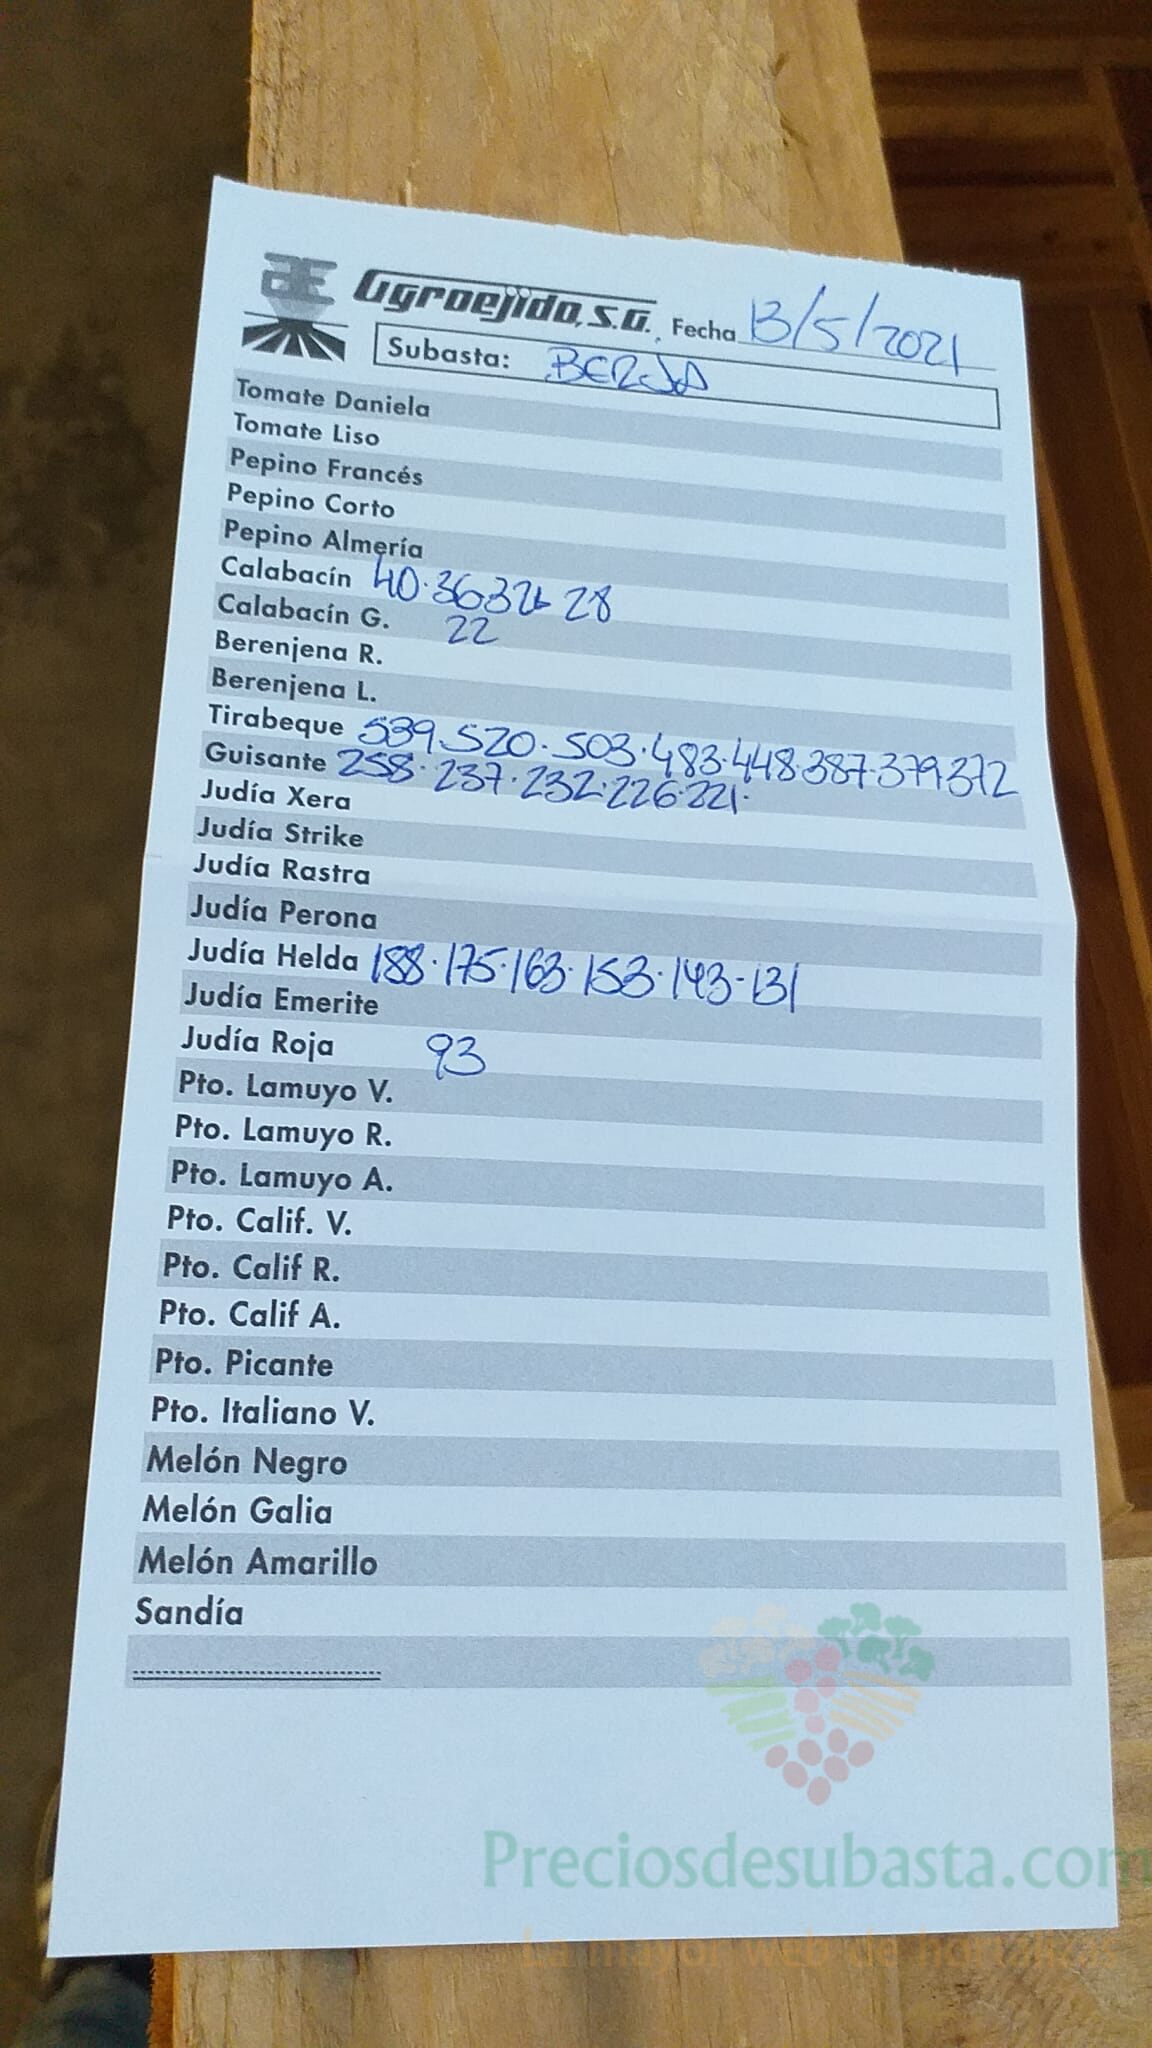 Agroejido, S.A. Fecha 13/5/2021
Subasta: BERJA
Tomate Daniela
Tomate Liso
Pepino Francés
Pepino Corto
Pepino Almería
Calabacín 40·36 28
Calabacín G. 22
Berenjena R.
Berenjena L.
Tirabeque 539·520·503·483·448·387·379 372
Guisante 258·237·232·226·221·
Judía Xera
Judía Strike
Judía Rastra
Judía Perona
Judía Helda 188·175·163·153·143-131
Judía Emerite
Judía Roja 93
Pto. Lamuyo V.
Pto. Lamuyo R.
Pto. Lamuyo A.
Pto. Calif. V.
Pto. Calif R.
Pto. Calif A.
Pto. Picante
Pto. Italiano V.
Melón Negro
Melón Galia
Melón Amarillo
Sandía
Preciosdesubasta.com
La mayor web de hortalizas